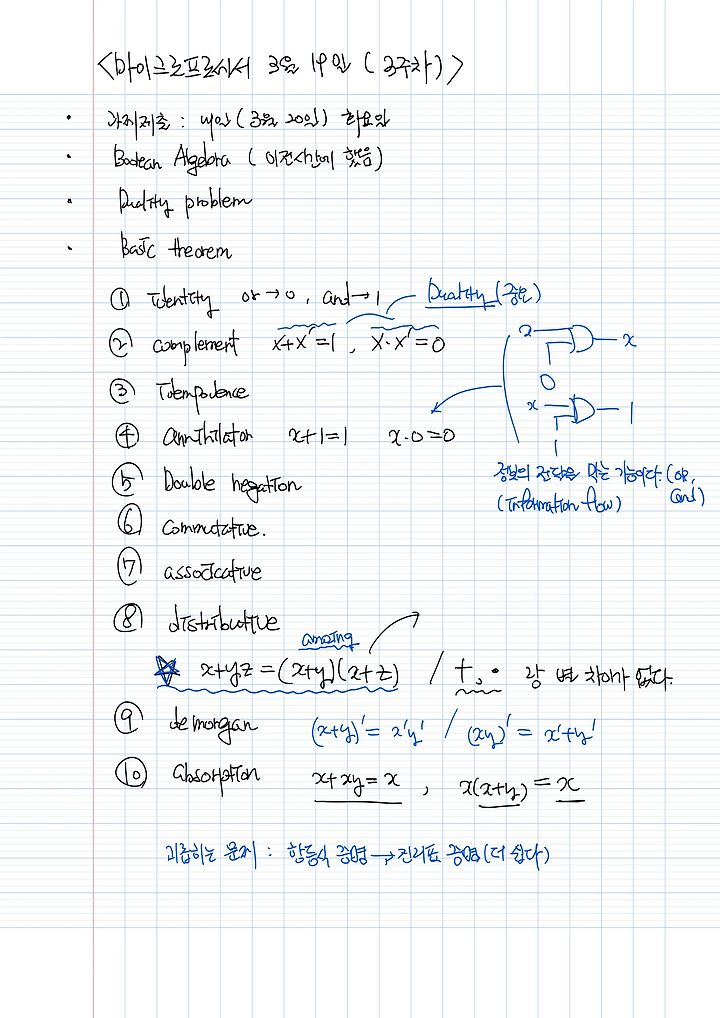 <마이크로프로세서 3월 19일 (3주차)>
· 과제제출 : 내일(3월 20일) 화요일
· Boolean Algebra ( 이전시간에 했음)
· Duality problem
· Basic theorem
① identity or → 0 , and → 1 Duality (중요)
② complement x+x'=1 , x·x'=0
x x
0
③ Idempotence
x 1
1
④ annihilator x+1=1 x·0=0
정보의 전달을 막는 기능이다. (or, and)
(Information flow)
⑤ Double negation
⑥ commutative.
⑦ associative
⑧ distributive
amazing
☆ x+yz=(x+y)(x+z) / +, · 랑 별 차이가 없다.
⑨ demorgan (x+y)'= x'y' / (xy)' = x'+y'
⑩ absorption x+xy=x , x(x+y) = x
괴롭히는 문제 : 항등식 증명 → 진리표 증명(더 쉽다)